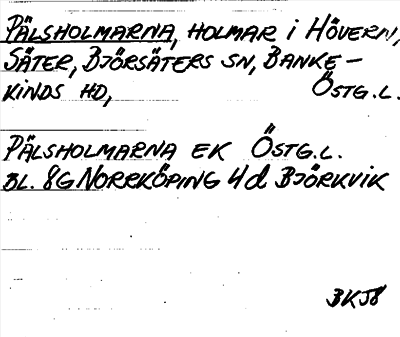 PÄLSHOLMARNA, HOLMAR i HÖVERN,
SÄTER, BJÖRSÄTERS SN, BANKE-
KINDS HD, ÖSTG.L.
PÄLSHOLMARNA EK ÖSTG.L.
BL. 8G NORRKÖPING 4d BJÖRKVIK
BKJ8